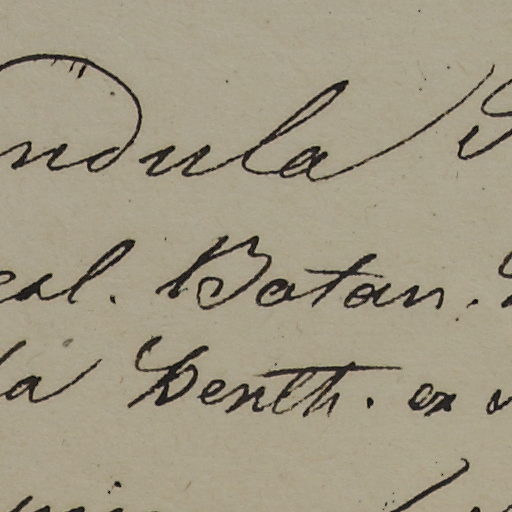 ndula
eal. Botan.
la Benth. ex